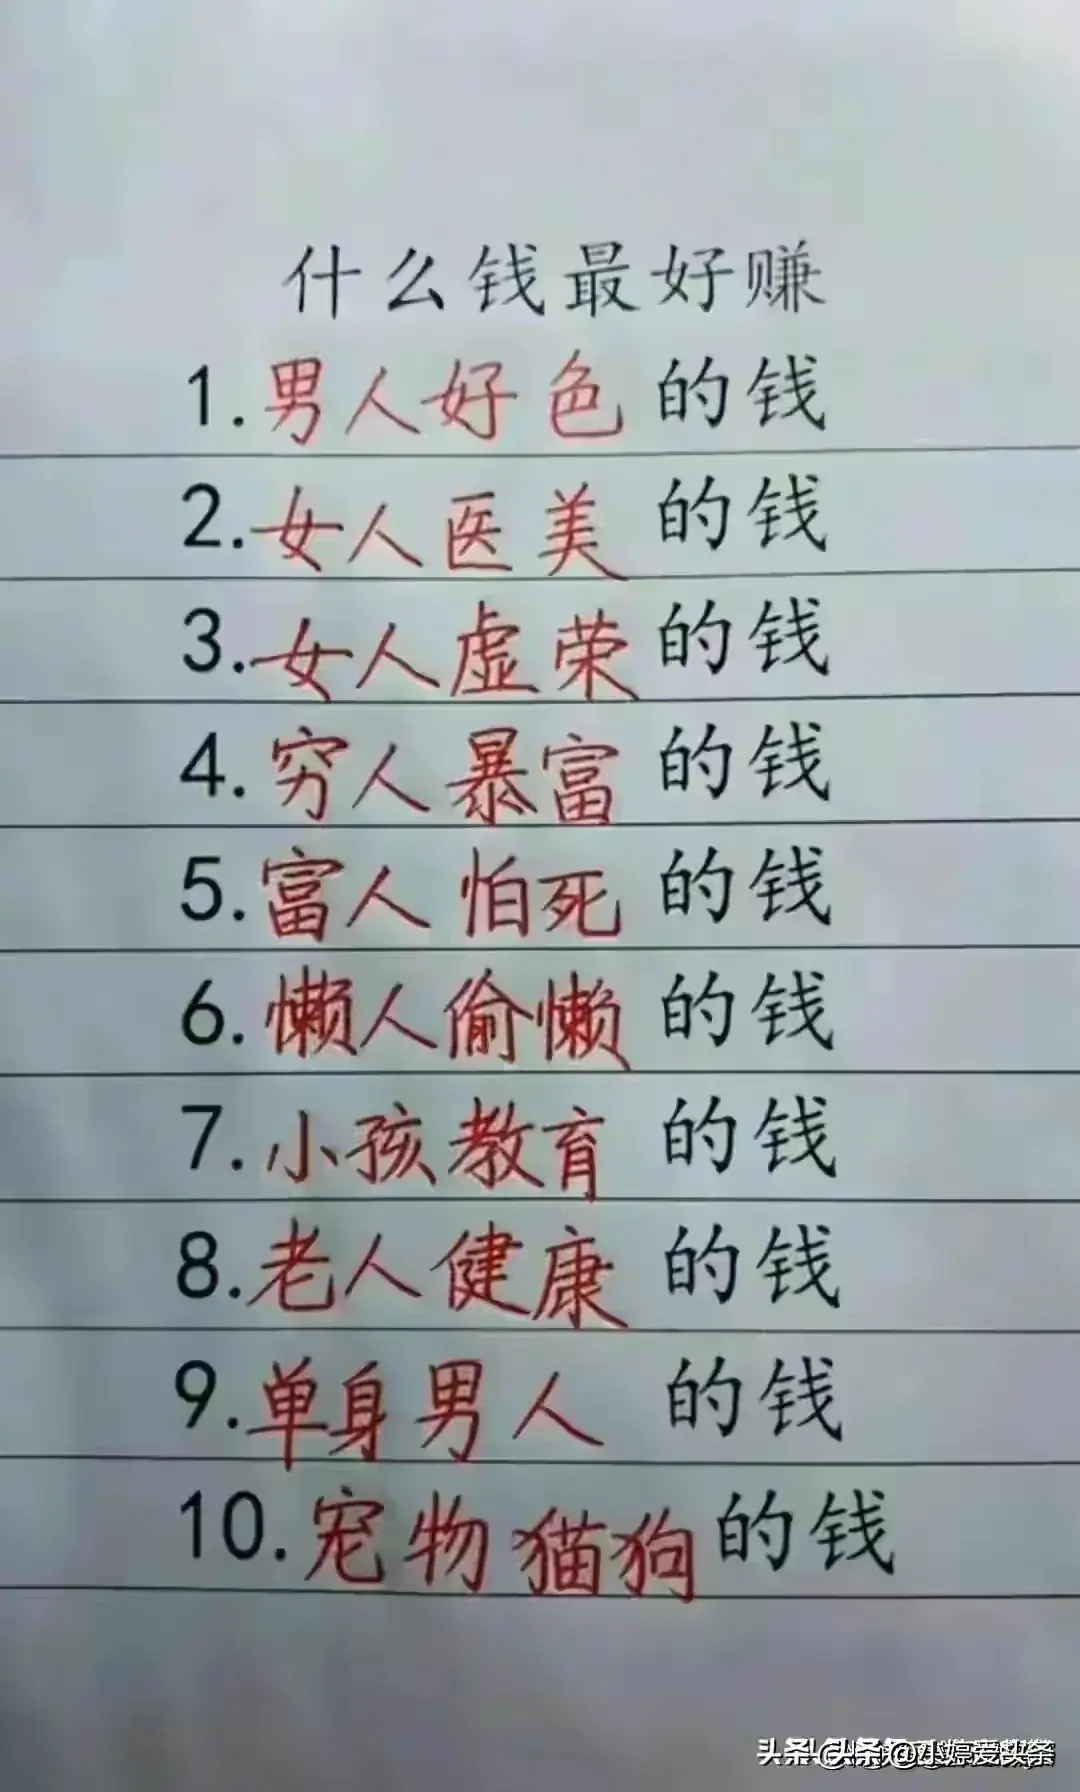 什么钱最好赚
1.男人好色的钱
2.女人医美的钱
3.女人虚荣的钱
4.穷人暴富的钱
5.富人怕死的钱
6.懒人偷懒的钱
7.小孩教育的钱
8.老人健康的钱
9.单身男人的钱
10.宠物猫狗的钱
头条 @小婷爱头条